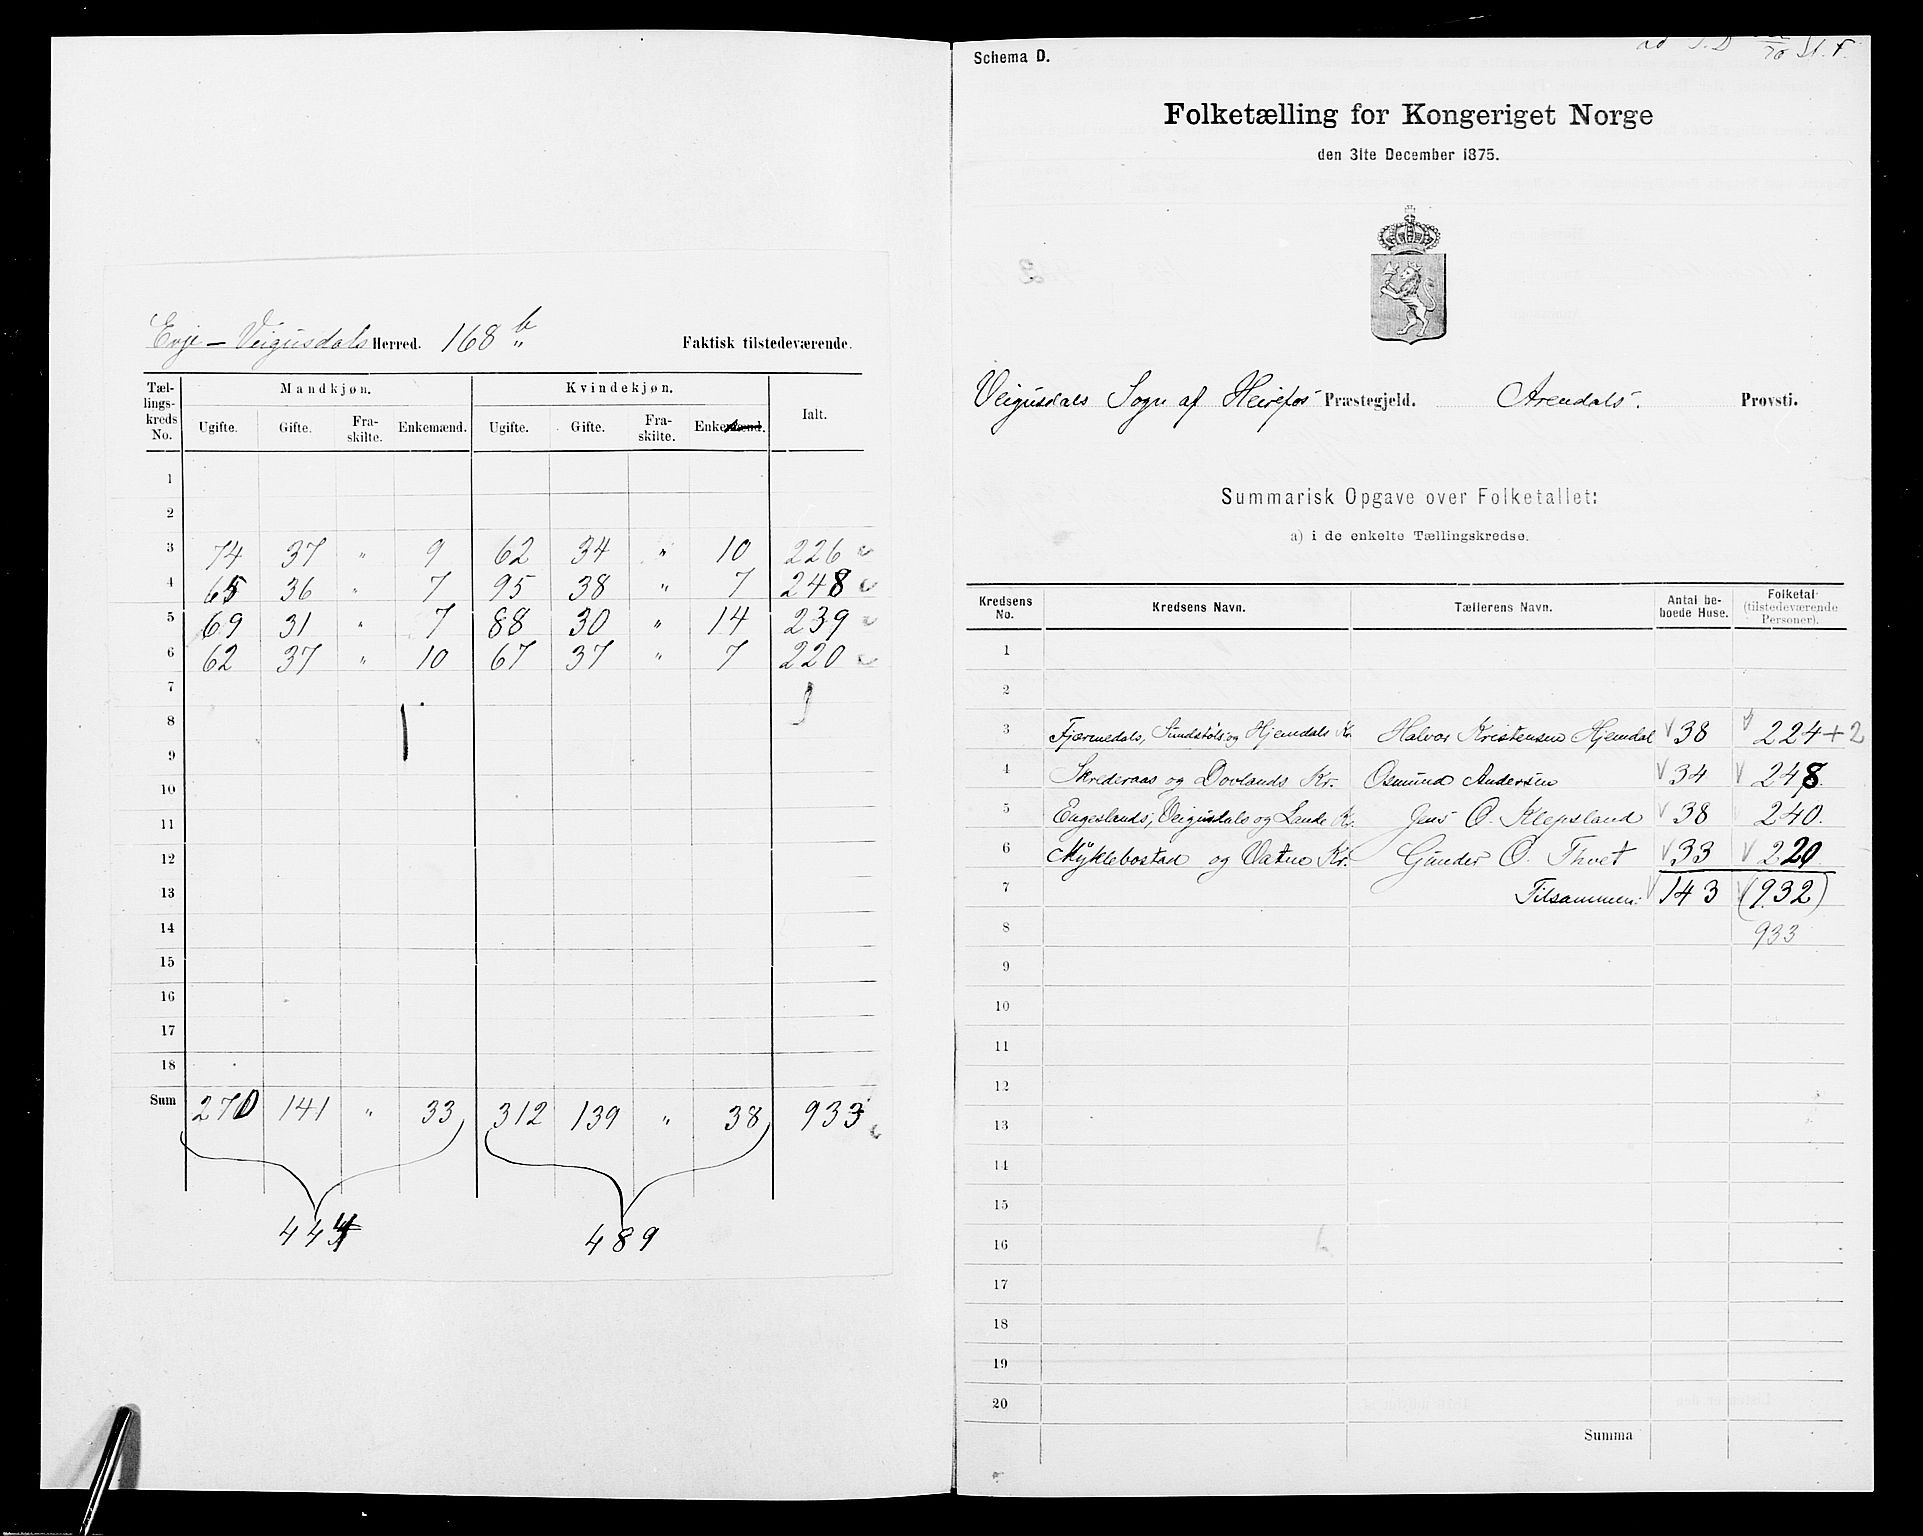 Evje - Veigusdals Herred. 168 b " Faktisk tilstedeværende.
Tællingskreds No. Mandkjøn. Kvindekjøn. Ialt.
Ugifte. Gifte. Fraskilte. Enkemænd. Ugifte. Gifte. Fraskilte. Enkemænd.
1
2
3 74 37 " 9 62 34 " 10 226
4 65 36 " 7 95 38 " 7 248
5 69 31 " 7 88 30 " 14 239
6 62 37 " 10 67 37 " 7 220
7
8
9
10
11
12
13
14
15
16
17
18
Sum 270 141 " 33 312 139 " 38 933
444 489
Schema D.
Folketælling for Kongeriget Norge
den 31te December 1875.
Veigusdals Sogn af Heirefos Præstegjeld. Arendals. Provsti.
Summarisk Opgave over Folketallet:
a) i de enkelte Tællingskredse.
Kredsens No. Kredsens Navn. Tællerens Navn. Antal beboede Huse. Folketal (tilstedeværende Personer).
1
2
3 Fjærmedals, Sundstøls og Hjemdals Kr. Halvor Kristensen Hjemdal 38 224 + 2
4 Skrederaas og Dovlands Kr. Osmund Andersen 34 248.
5 Engeslands, Veigusdals og Lande Kr. Jens O. Klepsland 38 240.
6 Myklebostad og Vatne Kr. Gunder O. Thvet 33 220
7 Tilsammen: 143 (932)
8 933
9
10
11
12
13
14
15
16
17
18
19
20
Summa